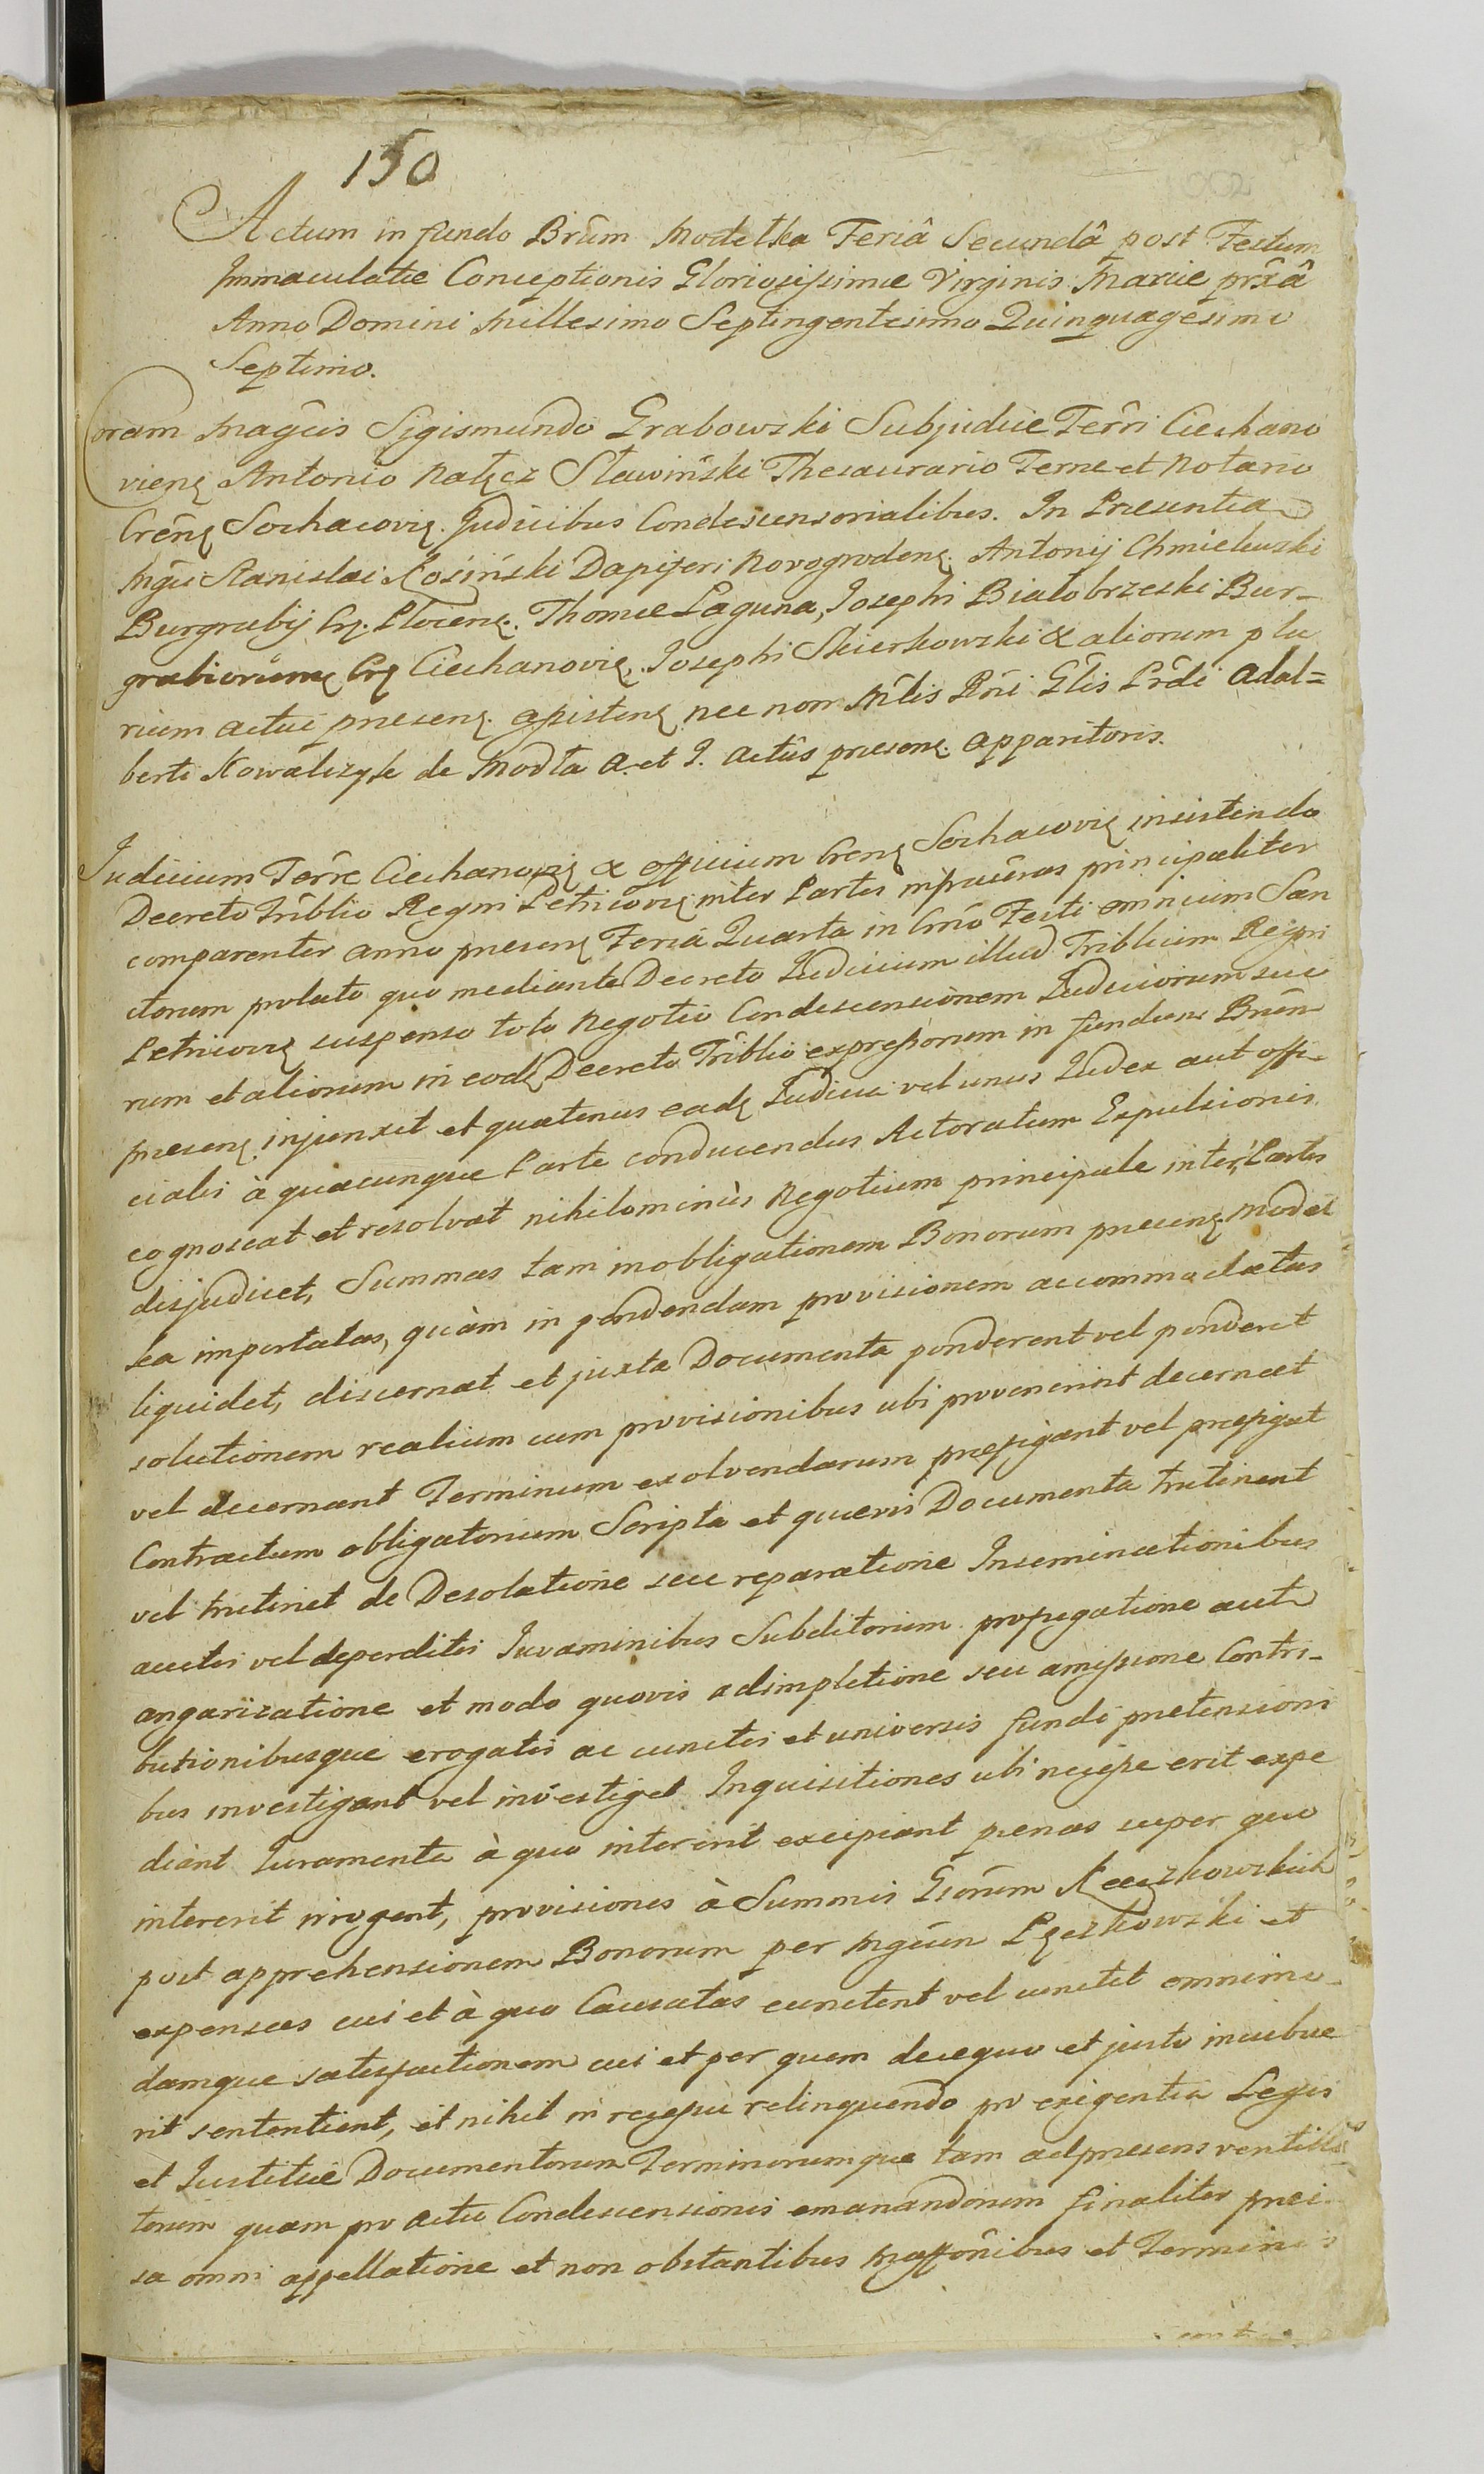 150
002
Actum in fundo Brûm Modełka Feriâ Secundâ post Festum
Immaculatæ Conceptionis Gloriosissimæ Virginis Mariæ prxâ
Anno Domini Millesimo Septingentesimo Quinquagesimo
Septimo.
Coram Magcis Sigismundo Grabowski Subjudice Terri Ciechano
vienę Antonio Nałęcz Sławiński Thesaurario Terræ et Notario
Crenę Sochacovię. Judicibus Condescensorialibus. In Præsentia
Mgci Stanislai Kosiński Dapiferi Novogrodenę. Antonij Chmielewski
Burgrabij Crę. Plocenę. Thomæ Laguna, Josephi Białobrzeski Bur-
grabiorum Crę Ciechanovię. Josephi Skierkowski & aliorum plu
rium actui præsenę. assistenę nec non Mlis Rni Glis Prdi Adal=
berti Kowalizyk de Modła A. et J. actûs præsenę. apparitoris.
Judicium Terre Ciechanovię & officium Crenę Sochacovię insistendo
Decreto Triblio Regni Petricovię inter Partes infracûras principaliter
comparenter anno præsenę Feria Quarta in Cmô Festi omnium San
ctorum prolato quo mediante Decreto Judicium illud Triblium Regni
Petricovię suspenso toto Negotio Condescensionem Judiciorum sui
num et aliorum in eodę Decreto Triblio expressorum in fundum Brûm
præsenę. injunxit et quatenus eadę Judicia vel unus Judex aut offi-
cialis à quacunque Parte conducendus Actoratum Expulsionis
cognoscat et resolvat nihilominùs Negotium principale inter Partes
disjudicet, Summas tam in obligationem Bonorum præsenę. Modeł
ka importatas, quàm in pendendam provisionem accommodatas
liquidet, discernat et juxta Documenta ponderent vel ponderet
solutionem realium cum provisionibus ubi provenerint decernat
vel decernant Terminum exolvendarum præfigant vel præfigat
Contractum obligatorium Scripta et quævis Documenta trutinent
vel trutinet de Desolatione seu reparatione Inseminationibus
auctis vel deperditis Juvaminibus Subditorum profugatione aut
angarizatione et modo quovis adimpletione seu amissione Contri-
butionibusque erogatis ac cunctis et universis fundi prætensioni
bus investigent vel investiget Inquisitiones ubi necesse erit expe
diant Juramenta à quo intererit excipiant pænas super quo
intererit irrogent, provisiones à Summis Gsorum
post apprehensionem Bonorum per Mgcum Łączkowski et
expensas cui et à quo Causatas cunctent vel cunctet omnimo-
damque satisfactionem cui et per quem de æquo et justo incubue
rit sententient, et nihil in recessu relinquendo pro exigentia Legis
et Justitiæ Documentorum Terminorumque tam ad præsens ventila
torum quam pro actu Condescensionis emanandorum finaliter præci
sa omni appellatione et non obstantibus et Terminis